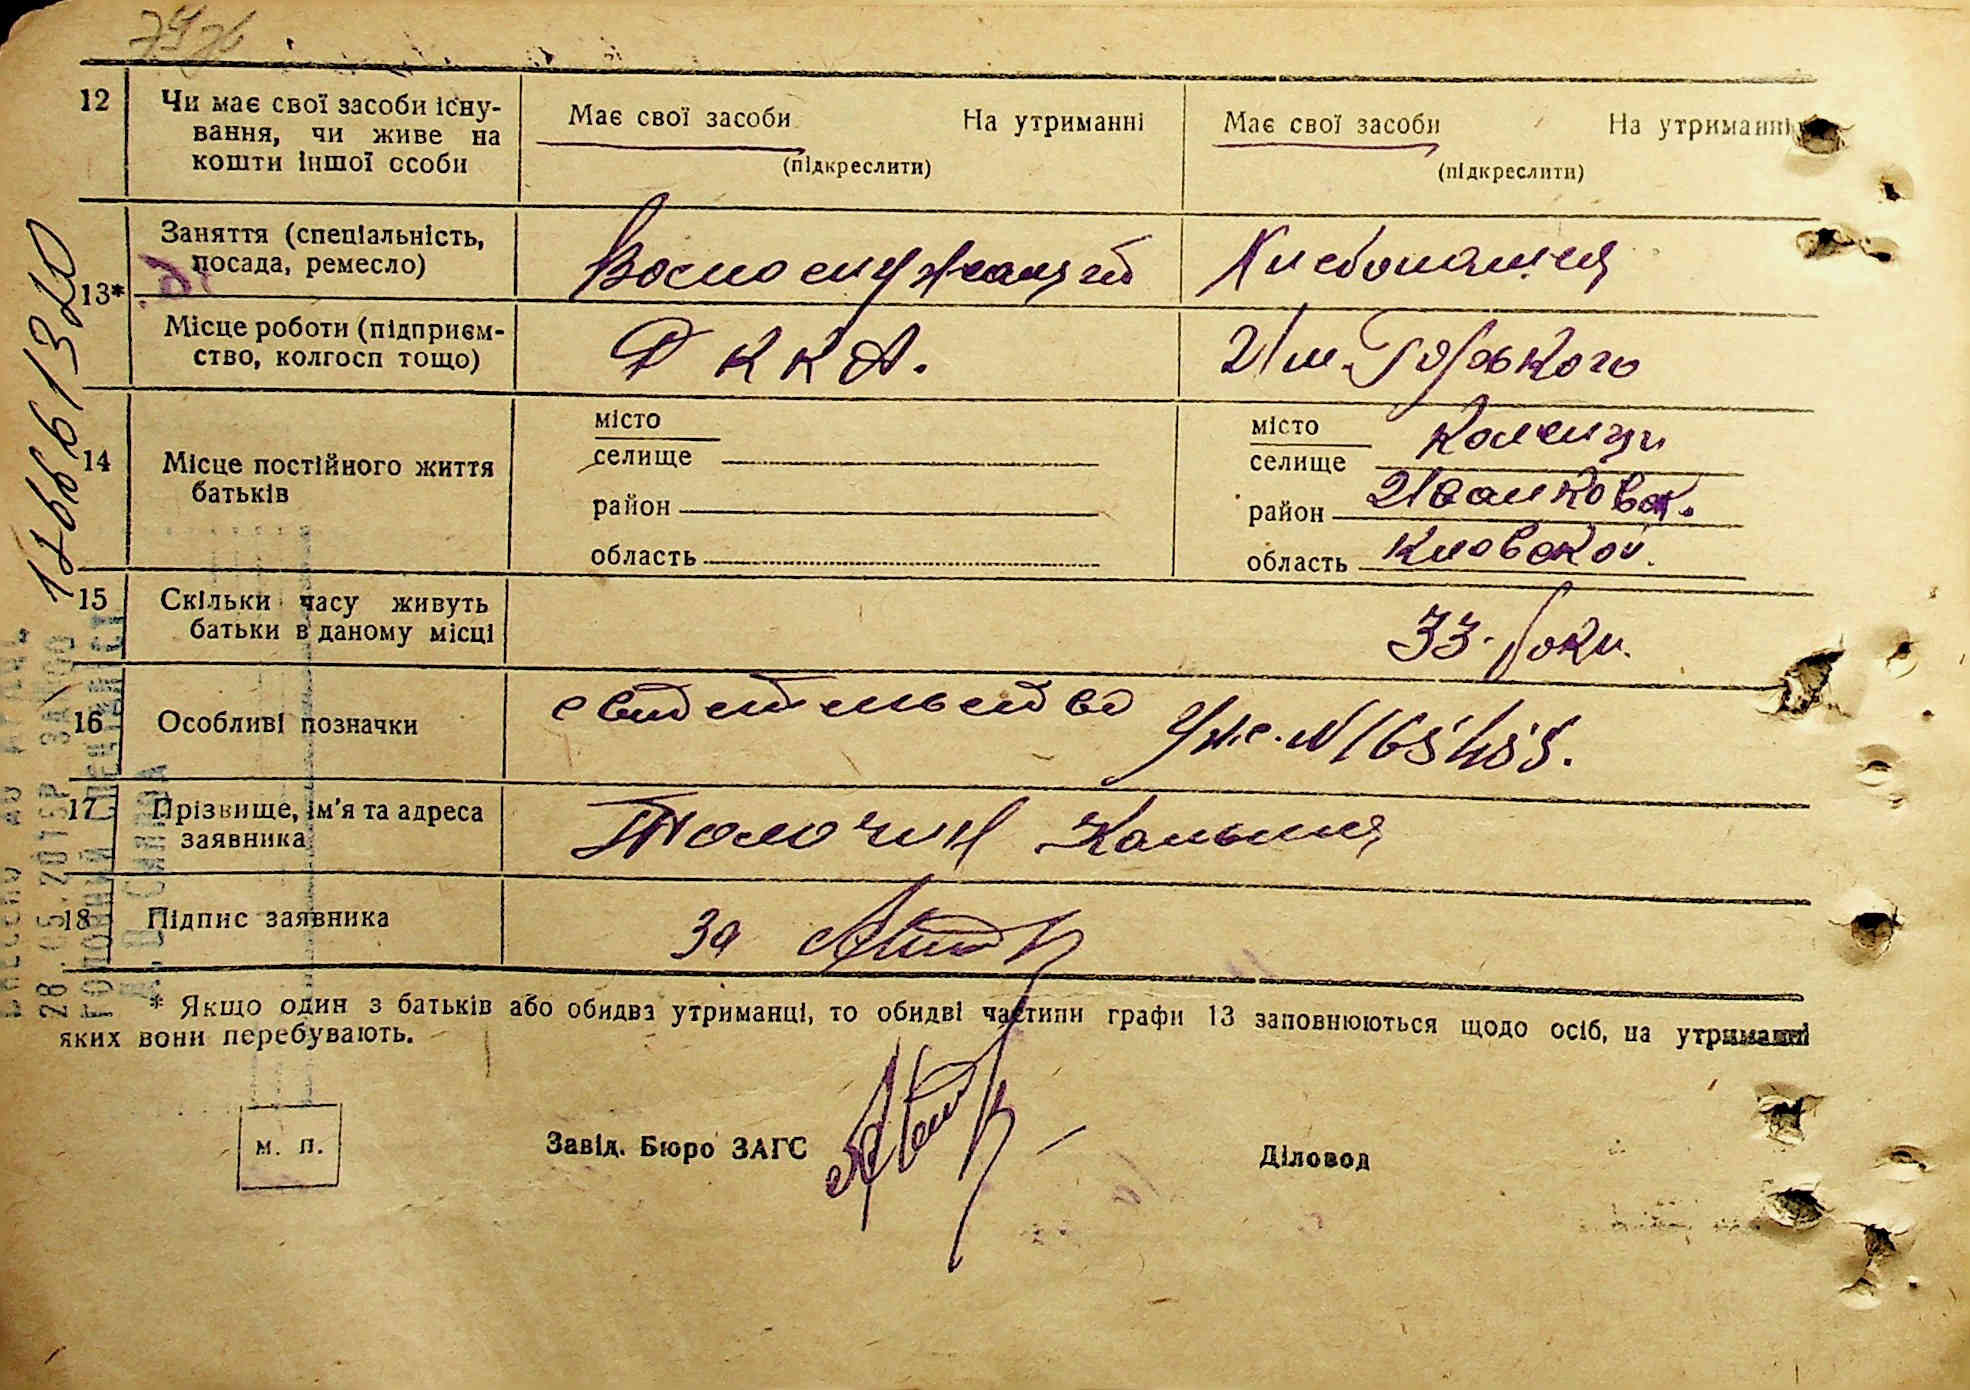 12 Чи має свої засоби існу-
вання, чи живе на
кошти іншої особи
Має свої засоби На утриманні
(підкреслити)
Має свої засоби На утриманні
(підкреслити)
13*
Заняття (спеціальність,
посада, ремесло)
Военослужащий
Хлебопашця
Місце роботи (підприєм-
ство, колгосп тощо)
РККА.
Им. Горького
14 Місце постійного життя
батьків
місто
селище
район
область
місто
селище
район Иванковск.
область Киевской.
15 Скільки часу живуть
батьки в даному місці
33 роки.
16 Особливі позначки
свидетельство
17 Прізвище, ім'я та адреса
заявника
18 Підпис заявника
за
* Якщо один з батьків або обидва утриманці, то обидві частини графи 13 заповнюються щодо осіб, на утриманні
яких вони перебувають.
м. п.
Завід. Бюро ЗАГС
Діловод